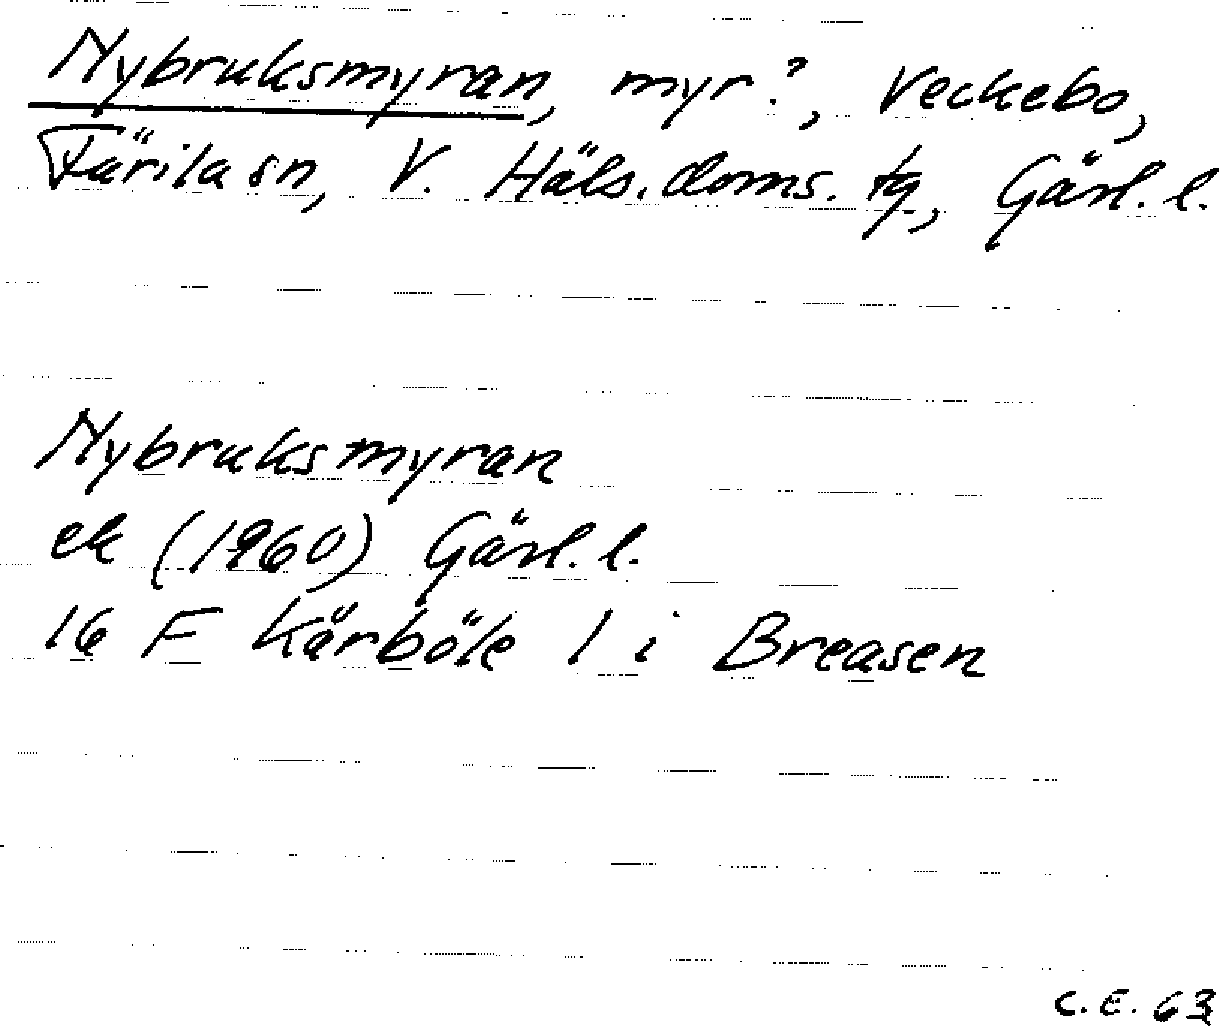 Nybruksmyran, myr?, Veckebo,
Färila sn, V. Häls. doms. tg, Gävl. l.
Nybruksmyran
ek (1960) Gävl. l.
16 F Kårböle 1 i Breasen
C. E. 63